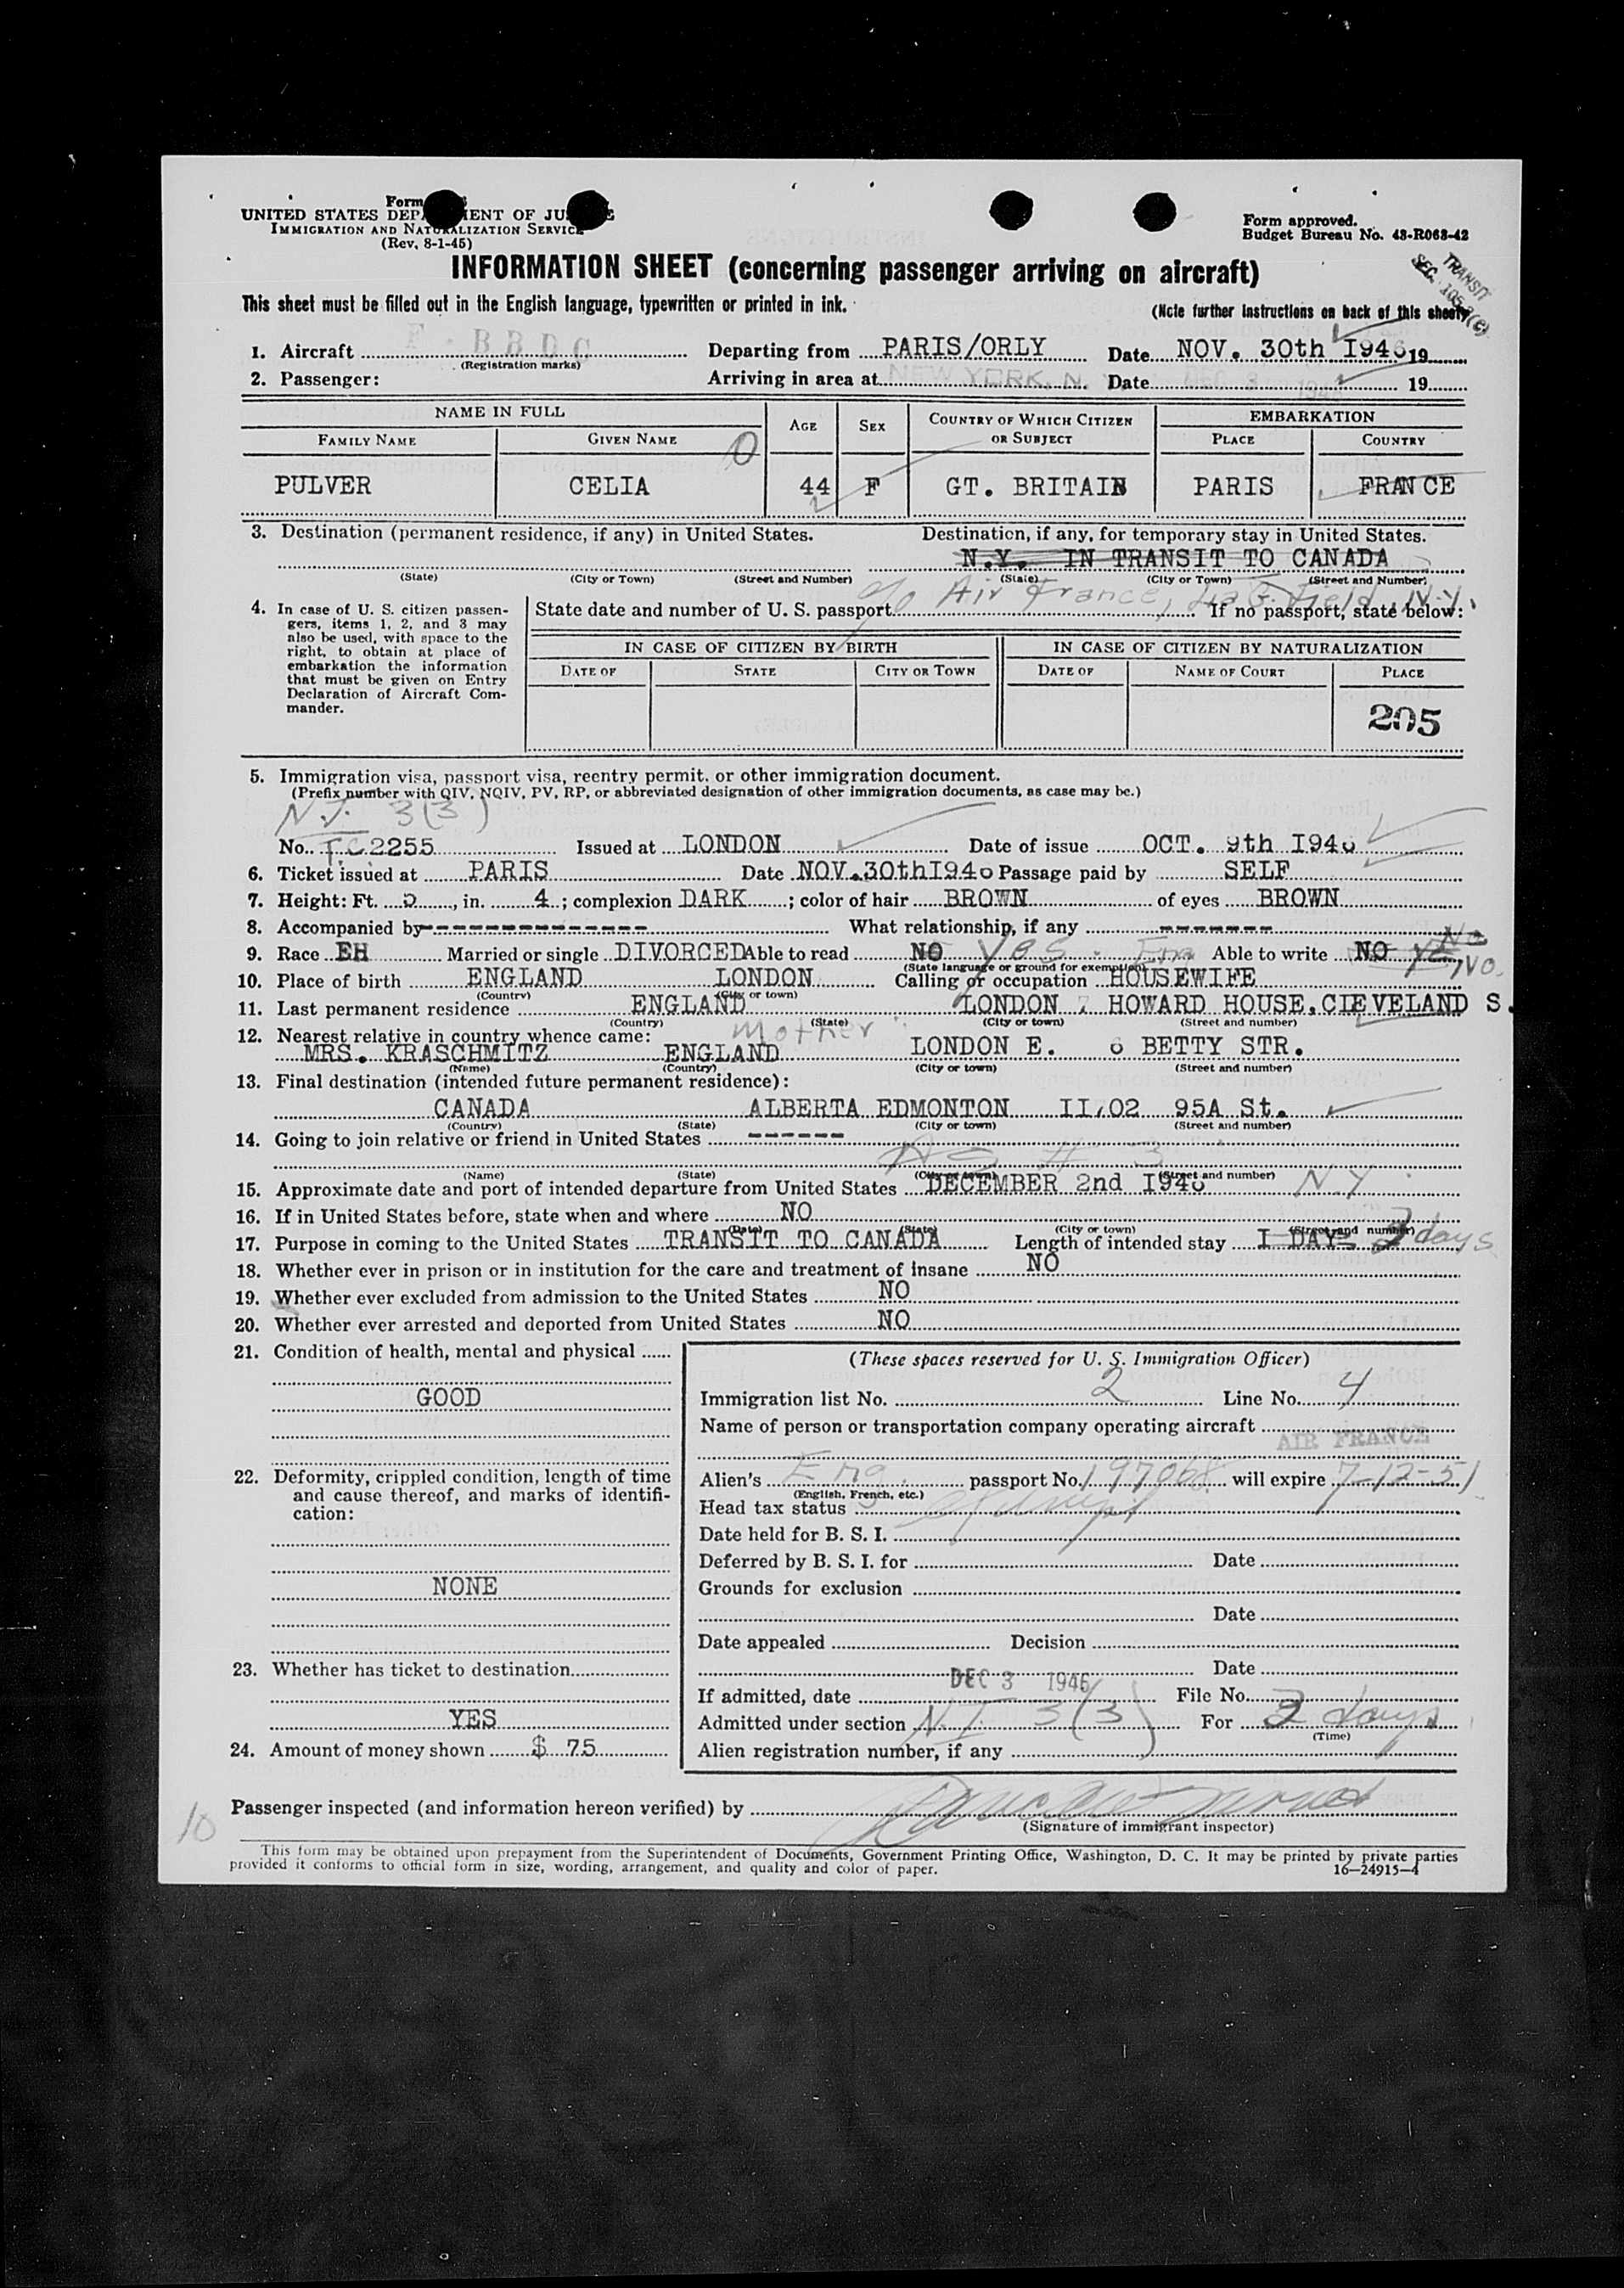 Form
UNITED STATES DEPARTMENT OF JUSTICE
IMMIGRATION AND NATURALIZATION SERVICE
(Rev. 8-1-45)
Form approved.
Budget Bureau No. 43-R063-42
INFORMATION SHEET (concerning passenger arriving on aircraft)
TRANSIT
SEC. 105.3(c)
This sheet must be filled out in the English language, typewritten or printed in ink. (Note further instructions on back of this sheet)
1. Aircraft F-BBDC Departing from PARIS/ORLY Date NOV. 30th I946 19
(Registration marks)
2. Passenger: Arriving in area at NEW YORK, N. Y. Date DEC 3 1946 19
NAME IN FULL AGE SEX COUNTRY OF WHICH CITIZEN OR SUBJECT EMBARKATION
FAMILY NAME GIVEN NAME PLACE COUNTRY
0
PULVER CELIA 44 F GT. BRITAIN PARIS FRANCE
3. Destination (permanent residence, if any) in United States. Destination, if any, for temporary stay in United States.
N.Y. IN TRANSIT TO CANADA
(State) (City or Town) (Street and Number) (State) (City or Town) (Street and Number)
c/o Air France, LaG. Field, N.Y.
4. In case of U. S. citizen passengers, items 1, 2, and 3 may also be used, with space to the right, to obtain at place of embarkation the information that must be given on Entry Declaration of Aircraft Commander.
State date and number of U. S. passport If no passport, state below:
IN CASE OF CITIZEN BY BIRTH IN CASE OF CITIZEN BY NATURALIZATION
DATE OF STATE CITY OR TOWN DATE OF NAME OF COURT PLACE
205
5. Immigration visa, passport visa, reentry permit, or other immigration document.
(Prefix number with QIV, NQIV, PV, RP, or abbreviated designation of other immigration documents, as case may be.)
N.I. 3(3)
No. T.C 2255 Issued at LONDON Date of issue OCT. 9th I946
6. Ticket issued at PARIS Date NOV.30thI946 Passage paid by SELF
7. Height: Ft. 5, in. 4; complexion DARK; color of hair BROWN of eyes BROWN
8. Accompanied by -------------- What relationship, if any -------
9. Race EH Married or single DIVORCED Able to read NO Yes. Eng Able to write NO Yes No
(State language or ground for exemption)
NO.
10. Place of birth ENGLAND LONDON Calling or occupation HOUSEWIFE
(Country) (City or town)
11. Last permanent residence ENGLAND LONDON 7 HOWARD HOUSE,CLEVELAND S.
(Country) (State) (City or town) (Street and number)
12. Nearest relative in country whence came: Mother
MRS. KRASCHMITZ ENGLAND LONDON E. 6 BETTY STR.
(Name) (Country) (City or town) (Street and number)
13. Final destination (intended future permanent residence):
CANADA ALBERTA EDMONTON II,02 95A St.
(Country) (State) (City or town) (Street and number)
14. Going to join relative or friend in United States ------
AS # 3
(Name) (State) (City or town) (Street and number)
15. Approximate date and port of intended departure from United States DECEMBER 2nd I946 N.Y.
16. If in United States before, state when and where NO
(Date) (State) (City or town) (Street and number)
17. Purpose in coming to the United States TRANSIT TO CANADA Length of intended stay I DAYS 3 days
18. Whether ever in prison or in institution for the care and treatment of insane NO
19. Whether ever excluded from admission to the United States NO
20. Whether ever arrested and deported from United States NO
21. Condition of health, mental and physical
GOOD
22. Deformity, crippled condition, length of time and cause thereof, and marks of identification:
NONE
23. Whether has ticket to destination
YES
24. Amount of money shown $ 75
(These spaces reserved for U. S. Immigration Officer)
Immigration list No. 2 Line No. 4
Name of person or transportation company operating aircraft
AIR FRANCE
Alien's Eng. passport No. 197068 will expire 7-12-51
(English, French, etc.)
Head tax status exempt
Date held for B. S. I.
Deferred by B. S. I. for Date
Grounds for exclusion
Date
Date appealed Decision
Date
If admitted, date DEC 3 1946 File No.
Admitted under section N.I 3(3) For 3 days
(Time)
Alien registration number, if any
10
Passenger inspected (and information hereon verified) by
(Signature of immigrant inspector)
This form may be obtained upon prepayment from the Superintendent of Documents, Government Printing Office, Washington, D. C. It may be printed by private parties
provided it conforms to official form in size, wording, arrangement, and quality and color of paper. 16—24915-4